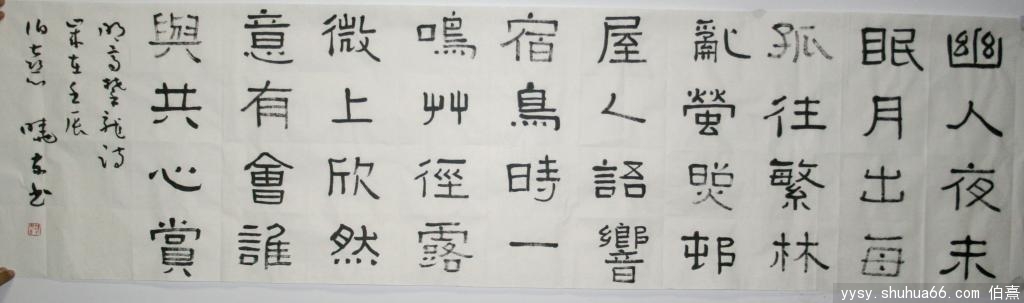 幽人夜未
眠月出每
孤往繁林
亂螢照邨
屋人語響
宿鳥時一
鳴艸徑露
微上欣然
意有會誰
與共心賞
明高攀龍詩
歲在壬辰
伯熹 曉东书
yysy.shuhua66.com 伯熹